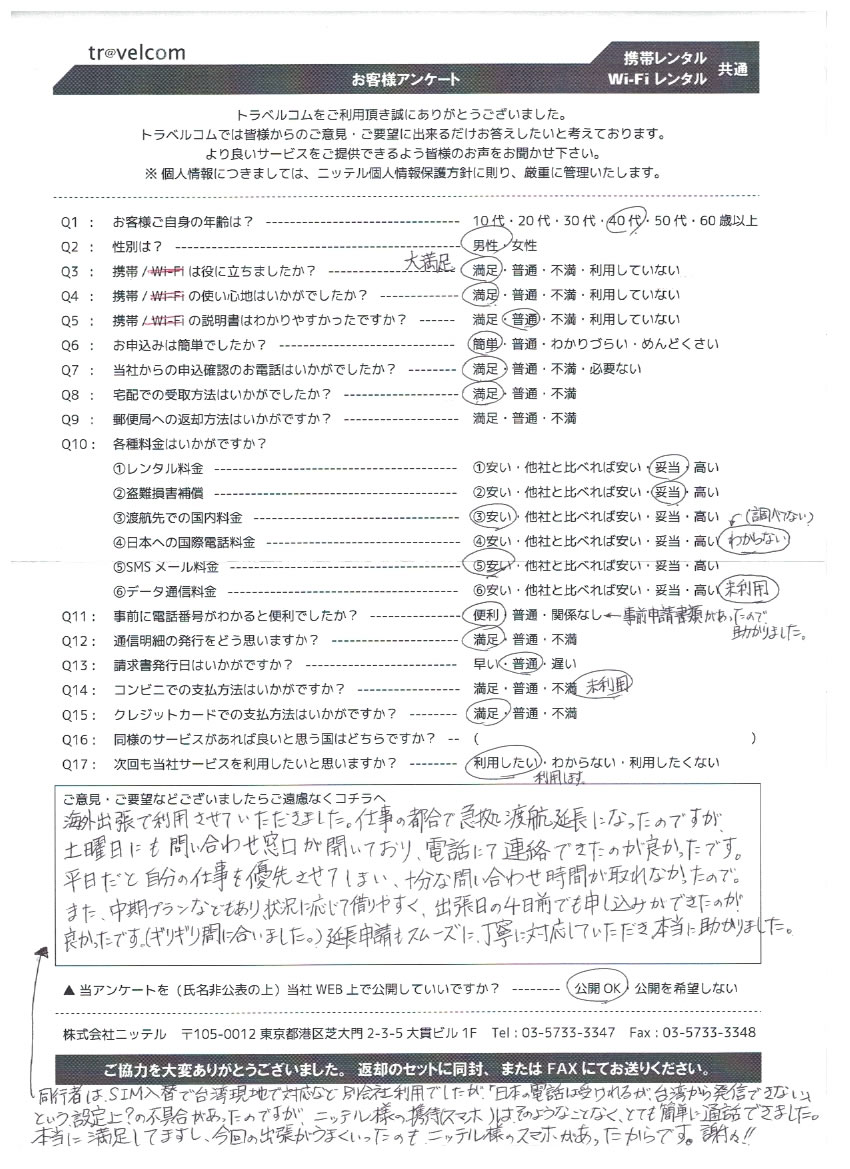 tr@velcom
携帯レンタル
Wi-Fi レンタル 共通
お客様アンケート
トラベルコムをご利用頂き誠にありがとうございました。
トラベルコムでは皆様からのご意見・ご要望に出来るだけお答えしたいと考えております。
より良いサービスをご提供できるよう皆様のお声をお聞かせ下さい。
※ 個人情報につきましては、ニッテル個人情報保護方針に則り、厳重に管理いたします。
Q1 : お客様ご自身の年齢は? 10 代・20 代・30 代・40 代・50 代・60 歳以上
Q2 : 性別は? 男性・女性
大満足
Q3 : 携帯 / Wi-Fi は役に立ちましたか? 満足・普通・不満・利用していない
Q4 : 携帯 / Wi-Fi の使い心地はいかがでしたか? 満足・普通・不満・利用していない
Q5 : 携帯 / Wi-Fi の説明書はわかりやすかったですか? 満足・普通・不満・利用していない
Q6 : お申込みは簡単でしたか? 簡単・普通・わかりづらい・めんどくさい
Q7 : 当社からの申込確認のお電話はいかがでしたか? 満足・普通・不満・必要ない
Q8 : 宅配での受取方法はいかがでしたか? 満足・普通・不満
Q9 : 郵便局への返却方法はいかがですか? 満足・普通・不満
Q10 : 各種料金はいかがですか?
①レンタル料金 ①安い・他社と比べれば安い・妥当・高い
②盗難損害補償 ②安い・他社と比べれば安い・妥当・高い
③渡航先での国内料金 ③安い・他社と比べれば安い・妥当・高い (調べてない)
④日本への国際電話料金 ④安い・他社と比べれば安い・妥当・高い わからない
⑤SMS メール料金 ⑤安い・他社と比べれば安い・妥当・高い
⑥データ通信料金 ⑥安い・他社と比べれば安い・妥当・高い 未利用
Q11 : 事前に電話番号がわかると便利でしたか? 便利・普通・関係なし ← 事前申請書類があったので
助かりました。
Q12 : 通信明細の発行をどう思いますか? 満足・普通・不満
Q13 : 請求書発行日はいかがですか? 早い・普通・遅い
Q14 : コンビニでの支払方法はいかがですか? 満足・普通・不満 未利用
Q15 : クレジットカードでの支払方法はいかがですか? 満足・普通・不満
Q16 : 同様のサービスがあれば良いと思う国はどちらですか? ( )
Q17 : 次回も当社サービスを利用したいと思いますか? 利用したい・わからない・利用したくない
利用します
ご意見・ご要望などございましたらご遠慮なくコチラへ
海外出張で利用させていただきました。仕事の都合で急拠渡航延長になったのですが、
土曜日にも問い合わせ窓口が開いており、電話にて連絡できたのが良かったです。
平日だと自分の仕事を優先させてしまい、十分な問い合わせ時間が取れなかったので。
また、中期プランなどもあり、状況に応じて借りやすく、出張日の4日前でも申し込みができたのが
良かったです。(ギリギリ間に合いました。)延長申請もスムーズに、丁寧に対応していただき、本当に助かりました。
▲ 当アンケートを(氏名非公表の上)当社 WEB 上で公開していいですか? 公開 OK・公開を希望しない
株式会社ニッテル 〒105-0012 東京都港区芝大門 2-3-5 大貫ビル 1F Tel : 03-5733-3347 Fax : 03-5733-3348
ご協力を大変ありがとうございました。 返却のセットに同封、または FAX にてお送りください。
同行者は、SIM入替で台湾現地で対応など別会社利用でしたが、「日本の電話は受けれるが、台湾から発信できない」
という設定上?の不具合があったのですが、ニッテル様の携帯(スマホ)はそのようなことなく、とても簡単に通話できました。
本当に満足してますし、今回の出張がうまくいったのもニッテル様のスマホがあったからです。謝々!!